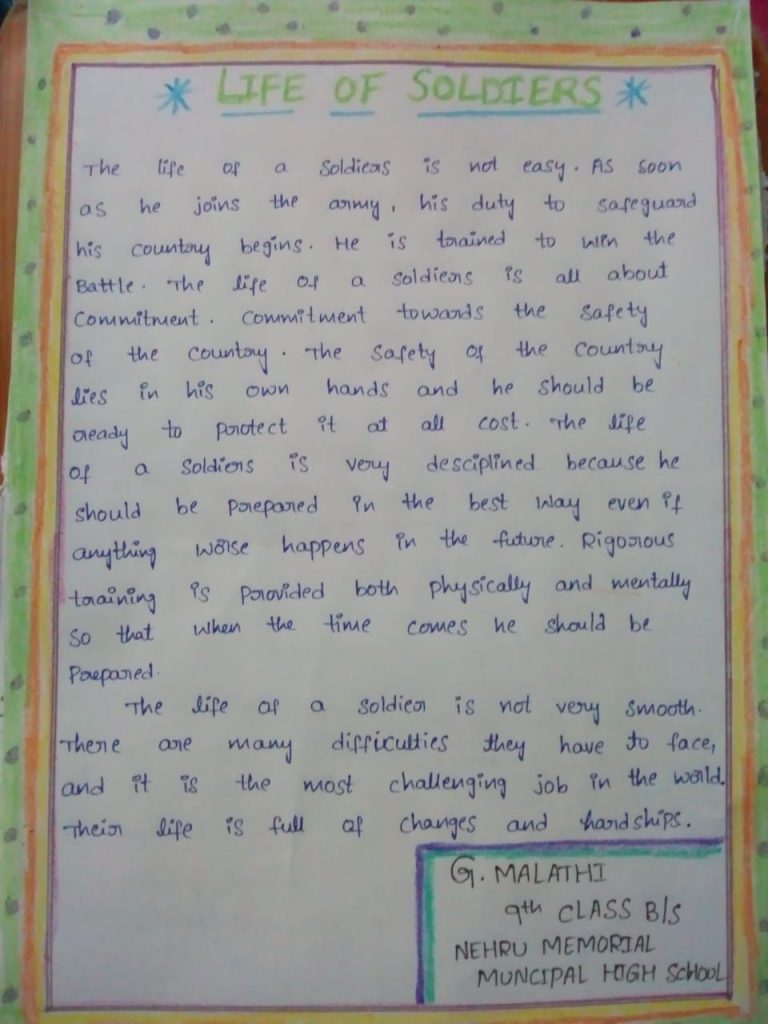 * LIFE OF SOLDIERS *
The life of a soldiers is not easy. As soon
as he joins the army, his duty to safeguard
his country begins. He is trained to win the
Battle. The life of a soldiers is all about
Commitment. Commitment towards the safety
of the country. The safety of the country
lies in his own hands and he should be
ready to protect it at all cost. The life
of a soldiers is very desciplined because he
should be prepared in the best way even if
anything worse happens in the future. Rigorous
training is provided both physically and mentally
so that when the time comes he should be
prepared.
The life of a soldier is not very smooth.
There are many difficulties they have to face,
and it is the most challenging job in the world.
Their life is full of changes and hardships.
G. MALATHI
9th CLASS B/S
NEHRU MEMORIAL
MUNCIPAL HIGH SCHOOL